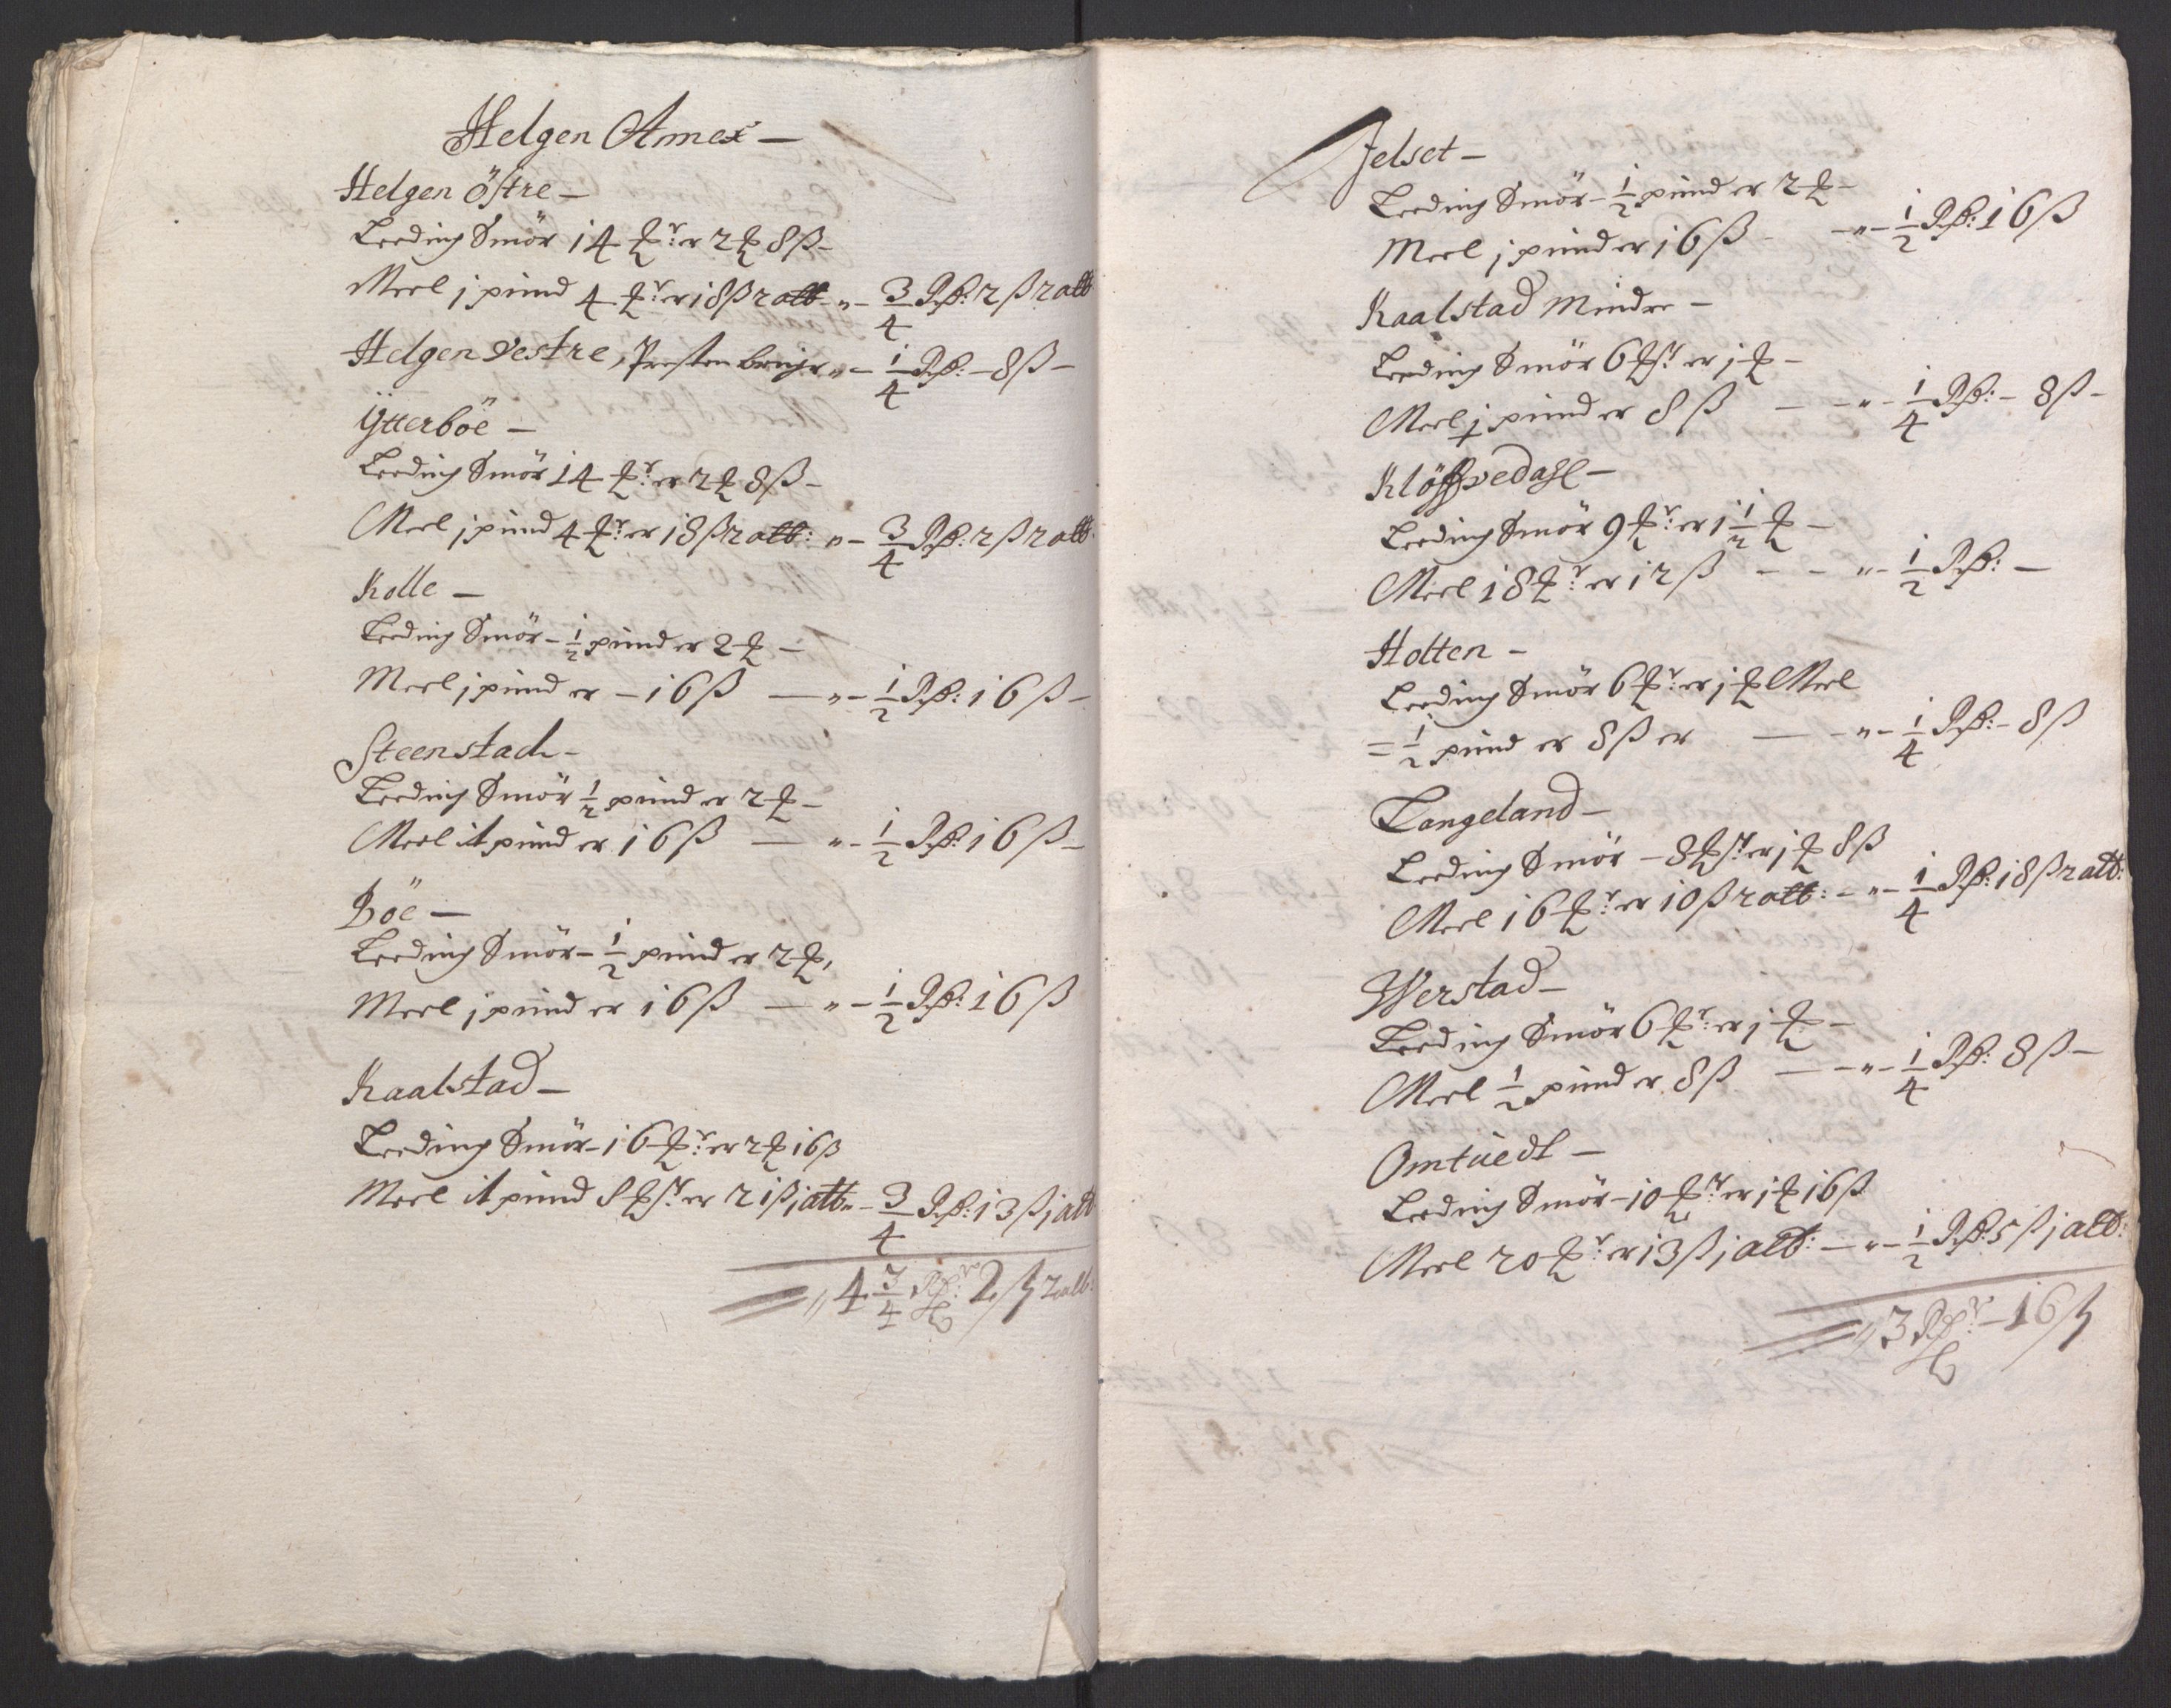 Helgen Annex –
Helgen östre –
Leeding Smör 14 ℔r: er 2 ℔ 8 ß –
Meel j pund 4 ℔r er 18 ß 2 alb - „ - 3/4 Rß: 2 ß 2 alb
Helgen Vestre, Presten bruger „ - 1/4 Rß: - 8 ß -
Ÿtterböe –
Leeding Smör 14 ℔r: er 2 ℔ 8 ß –
Meel j pund 4 ℔r: er 18 ß 2 alb: „ - 3/4 Rß: 2 ß 2 alb:
Kolle –
Leeding Smör - 1/2 pund er 2 ℔ –
Meel j pund er - 16 ß — „ - 1/2 Rß: 16 ß -
Steenstad –
Leeding Smör 1/2 pund er 2 ℔ –
Meel it pund er 16 ß — „ - 1/2 Rß: 16 ß -
Böe –
Leeding Smör - 1/2 pund er 2 ℔,
Meel j pund er 16 ß — „ - 1/2 Rß: 16 ß
Kaalstad –
Leeding Smör - 16 ℔r: er 2 ℔ 16 ß
Meel it pund 8 ℔r er 21 ß j alb „ - 3/4 Rß: 13 ß j alb
„ 4 3/4 Rdr: 2 ß 2 alb:
Jelset –
Leeding Smör - 1/2 pund er 2 ℔ –
Meel j pund er 16 ß - — „ - 1/2 Rß: 16 ß
Kaalstad Mindre –
Leeding Smör 6 ℔r er j ℔ –
Meel 1/2 pund er 8 ß — - „ - 1/4 Rß: - 8 ß -
Klöffvedahl –
Leeding Smör 9 ℔r: er 1 1/2 ℔ –
Meel 18 ℔r: er 12 ß - - „ - 1/2 Rß: –
Holten –
Leeding Smör 6 ℔r: er j ℔ Meel
= 1/2 pund er 8 ß er — - „ - 1/4 Rß: - 8 ß
Langeland –
Leeding Smör - 8 ℔r er j ℔ 8 ß
Meel 16 ℔r: er 10 ß 2 alb: - „ - 1/4 Rß: 18 ß 2 alb:
Werstad –
Leeding Smör 6 ℔r: er j ℔ –
Meel 1/2 pund er 8 ß — - „ - 1/4 Rß: 8 ß -
Omtuedt –
Leeding Smör - 10 ℔r er j ℔ 16 ß
Meel 20 ℔r: er 13 ß j alb: — „ - 1/2 Rß: 5 ß j alb:
„ 3 Rdr: - 16 ß